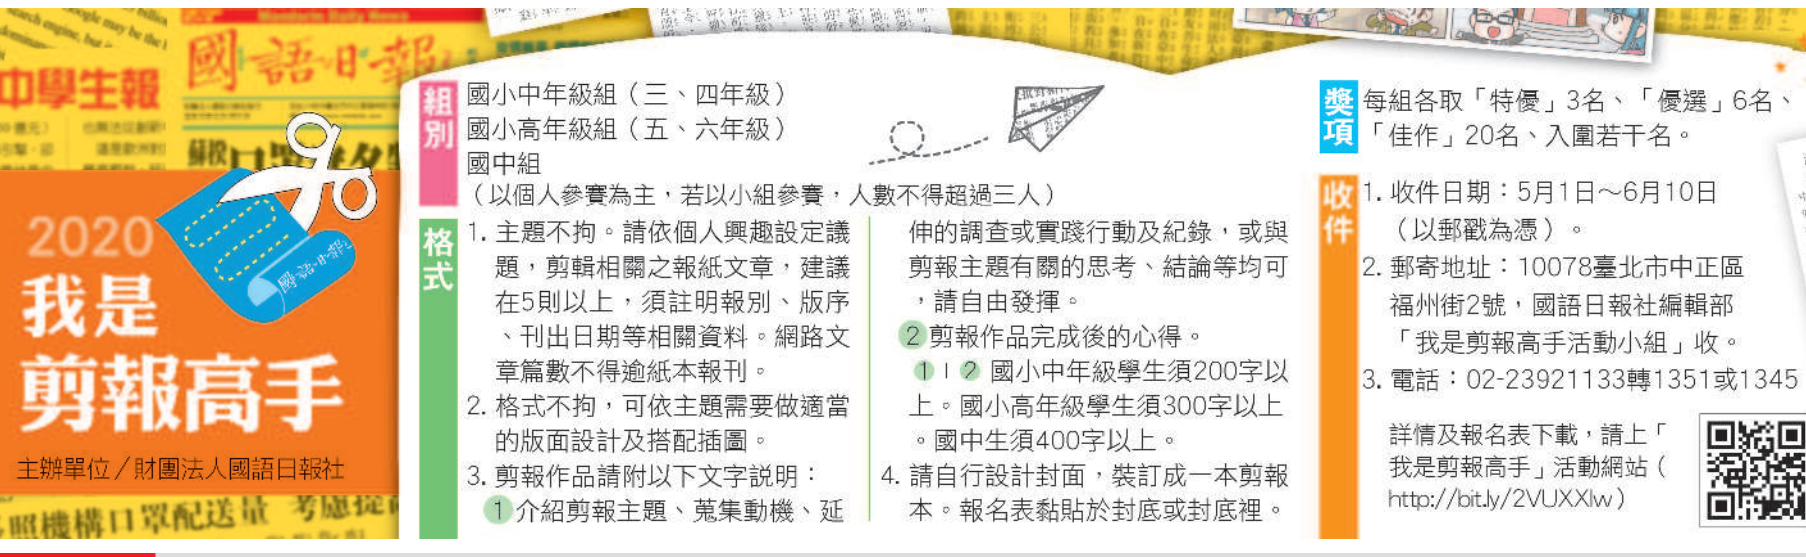 國語日報
中學生報
2020
我是
剪報高手
主辦單位／財團法人國語日報社
國語日報
照機構口罩配送量
組別
國小中年級組（三、四年級）
國小高年級組（五、六年級）
國中組
（以個人參賽為主，若以小組參賽，人數不得超過三人）
格式
1. 主題不拘。請依個人興趣設定議
題，剪輯相關之報紙文章，建議
在5則以上，須註明報別、版序
、刊出日期等相關資料。網路文
章篇數不得逾紙本報刊。
2. 格式不拘，可依主題需要做適當
的版面設計及搭配插圖。
3. 剪報作品請附以下文字說明：
1 介紹剪報主題、蒐集動機、延
伸的調查或實踐行動及紀錄，或與
剪報主題有關的思考、結論等均可
，請自由發揮。
2 剪報作品完成後的心得。
1 | 2 國小中年級學生須200字以
上。國小高年級學生須300字以上
。國中生須400字以上。
4. 請自行設計封面，裝訂成一本剪報
本。報名表黏貼於封底或封底裡。
獎項
每組各取「特優」3名、「優選」6名、
「佳作」20名、入圍若干名。
收件
1. 收件日期：5月1日～6月10日
（以郵戳為憑）。
2. 郵寄地址：10078臺北市中正區
福州街2號，國語日報社編輯部
「我是剪報高手活動小組」收。
3. 電話：02-23921133轉1351或1345
詳情及報名表下載，請上「
我是剪報高手」活動網站（
http://bit.ly/2VUXXlw）